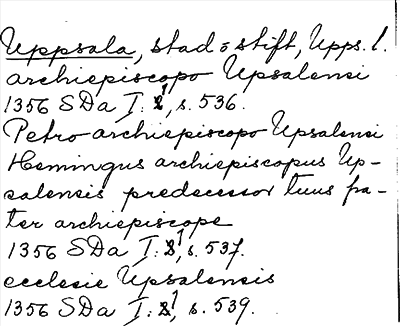 Uppsala, stad o stift, Upps. l.
archiepiscopo Upsalensi
1356 SDa I: 1, s. 536.
Petro archiepiscopo Upsalensi
Hemingus archiepiscopus Up-
salensis predecessor tuus fra-
ter archiepiscope
1356 SDa I: 1, s. 537.
ecclesie Upsalensis
1356 SDa I: 1, s. 539.